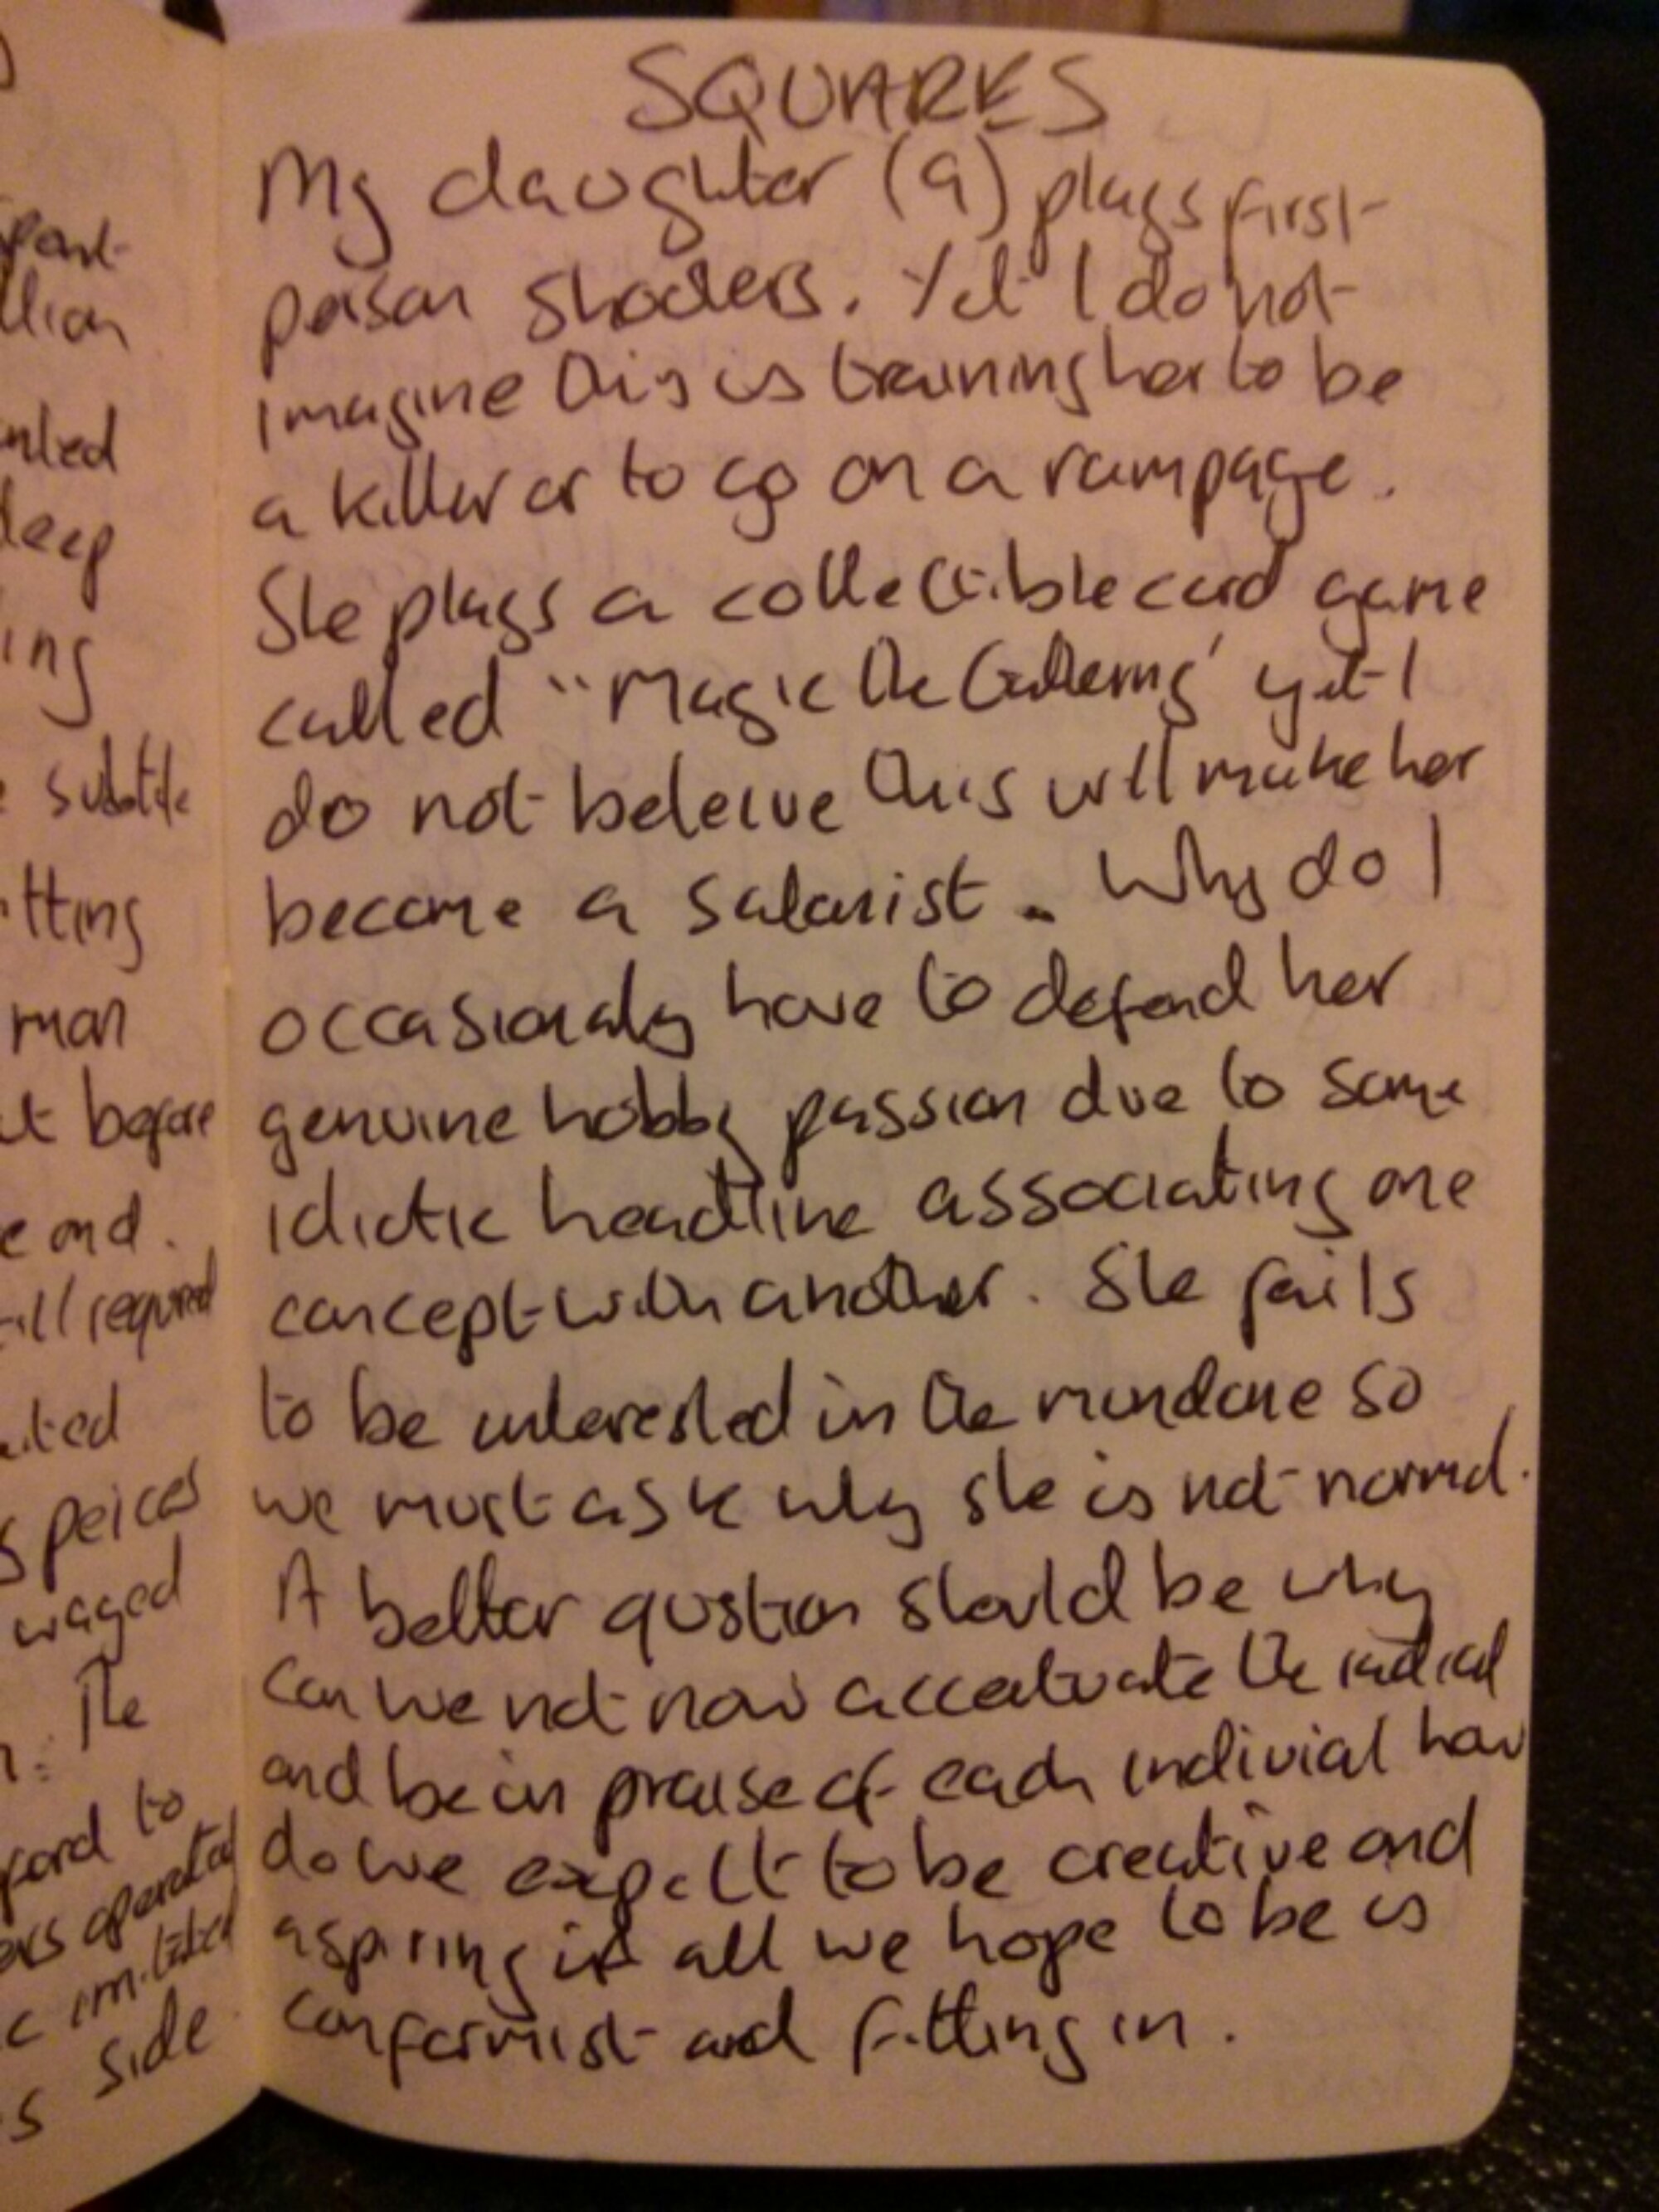 SQUARES
My daughter (9) plays first-
person shooters. Yet I do not
imagine this is training her to be
a killer or to go on a rampage.
She plays a collectible card game
called "Magic the Gathering' yet I
do not beleive this will make her
become a satanist. Why do I
occasionaly have to defend her
genuine hobby passion due to some
idiotic headline associating one
concept with another. She fails
to be interested in the mundane so
we must ask why she is not normal.
A better qustion should be why
can we not now accentuate the radical
and be in praise of each indivial how
do we expect to be creative and
aspiring if all we hope to be is
conformist and fitting in.
deep
ing
subtitle
tting
man
before
end.
required
peices
waged
The
to
operated
imitated
side